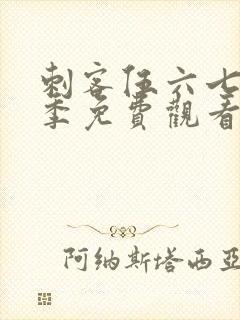 刺客伍六七
季免費觀看
阿纳斯塔西亚